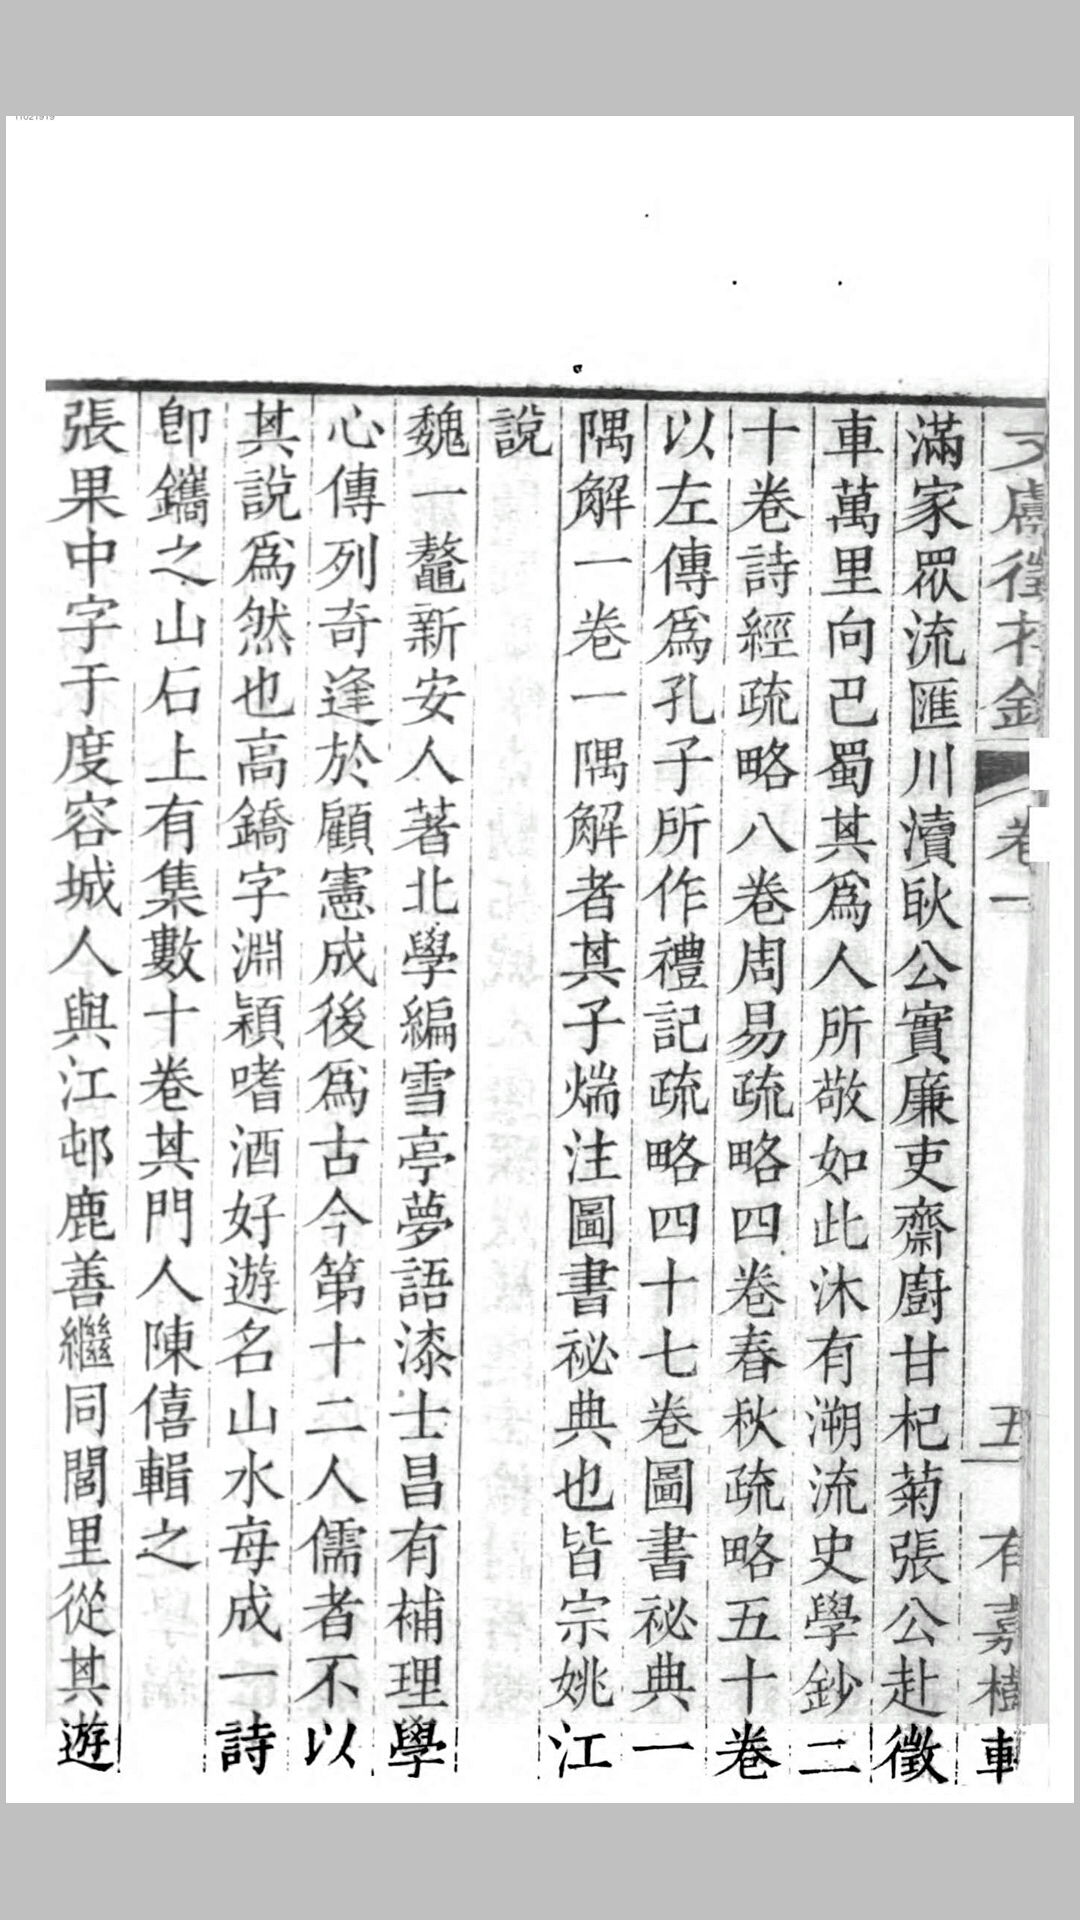 滿家眾流匯川瀆耿公實廉吏齋廚甘杞菊張公赴徵
車萬里向巴蜀其爲人所敬如此沐有溯流史學鈔二
十卷詩經疏略八卷周易疏略四卷春秋疏略五十卷
以左傳爲孔子所作禮記疏略四十七卷圖書祕典一
隅解一卷一隅解者其子煓注圖書祕典也皆宗姚江
說
魏一鼇新安人著北學編雪亭夢語漆士昌有補理學
心傳列奇逢於顧憲成後爲古今第十二人儒者不以
其說爲然也高鐈字淵穎嗜酒好遊名山水每成一詩
卽鑴之山石上有集數十卷其門人陳僖輯之
張果中字于度容城人與江邨鹿善繼同閭里從其遊